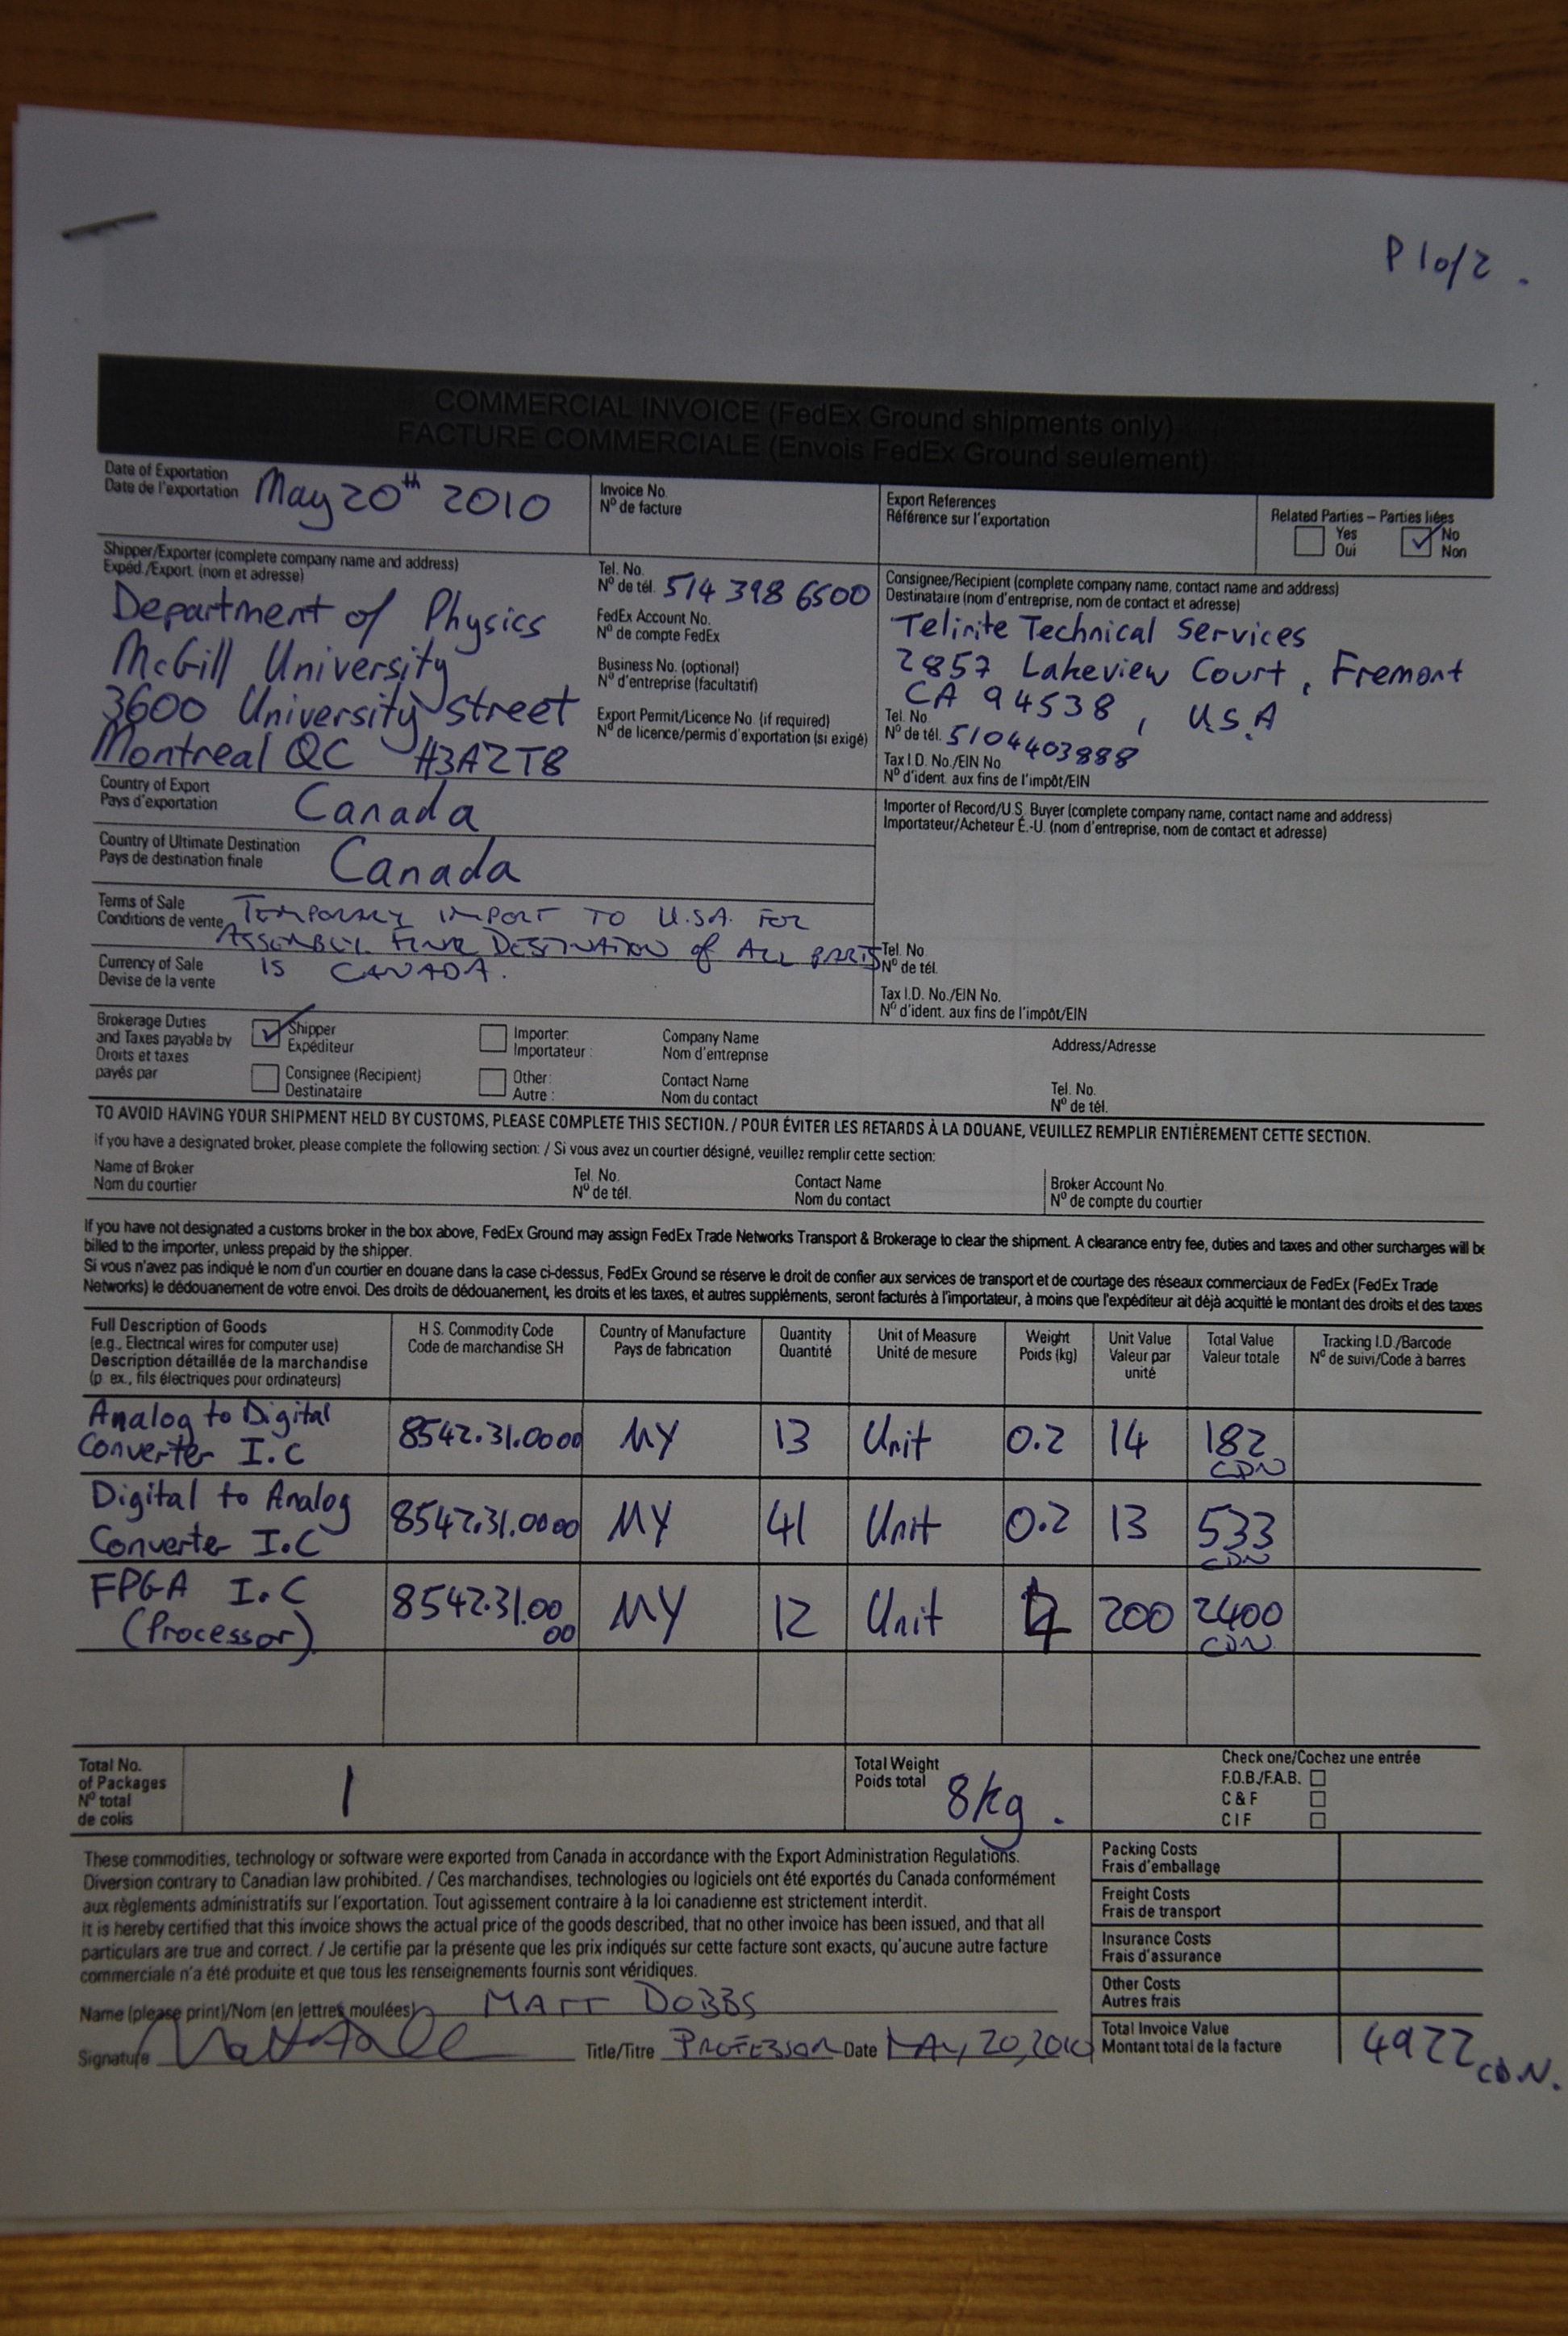 P 1 of 2.
COMMERCIAL INVOICE (FedEx Ground shipments only)
FACTURE COMMERCIALE (Envois FedEx Ground seulement)
Date of Exportation
Date de l'exportation
May 20th 2010
Invoice No.
Nº de facture
Export References
Référence sur l'exportation
Related Parties – Parties liées
Yes
Oui
No
Non
Shipper/Exporter (complete company name and address)
Expéd./Export. (nom et adresse)
Department of Physics
McGill University
3600 University street
Montreal QC H3A2T8
Tel. No.
Nº de tél. 514 398 6500
FedEx Account No.
Nº de compte FedEx
Business No. (optional)
Nº d'entreprise (facultatif)
Export Permit/Licence No. (if required)
Nº de licence/permis d'exportation (si exigé)
Consignee/Recipient (complete company name, contact name and address)
Destinataire (nom d'entreprise, nom de contact et adresse)
Telirite Technical Services
2857 Lakeview Court, Fremont
CA 94538, U.S.A
Tel. No.
Nº de tél. 5104403888
Tax I.D. No./EIN No.
Nº d'ident. aux fins de l'impôt/EIN
Country of Export
Pays d'exportation
Canada
Country of Ultimate Destination
Pays de destination finale
Canada
Importer of Record/U.S. Buyer (complete company name, contact name and address)
Importateur/Acheteur É.-U. (nom d'entreprise, nom de contact et adresse)
Terms of Sale
Conditions de vente
TEMPORARY IMPORT TO U.S.A. FOR
ASSEMBLY. FINAL DESTINATION of ALL PARTS
IS CANADA.
Currency of Sale
Devise de la vente
Tel. No.
Nº de tél.
Tax I.D. No./EIN No.
Nº d'ident. aux fins de l'impôt/EIN
Brokerage Duties
and Taxes payable by
Droits et taxes
payés par
Shipper
Expéditeur
Consignee (Recipient)
Destinataire
Importer:
Importateur :
Other:
Autre :
Company Name
Nom d'entreprise
Contact Name
Nom du contact
Address/Adresse
Tel. No.
Nº de tél.
TO AVOID HAVING YOUR SHIPMENT HELD BY CUSTOMS, PLEASE COMPLETE THIS SECTION. / POUR ÉVITER LES RETARDS À LA DOUANE, VEUILLEZ REMPLIR ENTIÈREMENT CETTE SECTION.
If you have a designated broker, please complete the following section: / Si vous avez un courtier désigné, veuillez remplir cette section:
Name of Broker
Nom du courtier
Tel. No.
Nº de tél.
Contact Name
Nom du contact
Broker Account No.
Nº de compte du courtier
If you have not designated a customs broker in the box above, FedEx Ground may assign FedEx Trade Networks Transport & Brokerage to clear the shipment. A clearance entry fee, duties and taxes and other surcharges will be
billed to the importer, unless prepaid by the shipper.
Si vous n'avez pas indiqué le nom d'un courtier en douane dans la case ci-dessus, FedEx Ground se réserve le droit de confier aux services de transport et de courtage des réseaux commerciaux de FedEx (FedEx Trade
Networks) le dédouanement de votre envoi. Des droits de dédouanement, les droits et les taxes, et autres suppléments, seront facturés à l'importateur, à moins que l'expéditeur ait déjà acquitté le montant des droits et des taxes
Full Description of Goods
(e.g., Electrical wires for computer use)
Description détaillée de la marchandise
(p. ex., fils électriques pour ordinateurs)
H.S. Commodity Code
Code de marchandise SH
Country of Manufacture
Pays de fabrication
Quantity
Quantité
Unit of Measure
Unité de mesure
Weight
Poids (kg)
Unit Value
Valeur par
unité
Total Value
Valeur totale
Tracking I.D./Barcode
Nº de suivi/Code à barres
Analog to Digital
Converter I.C
8542.31.0000 MY 13 Unit 0.2 14 182
CDN
Digital to Analog
Converter I.C
8542.31.0000 MY 41 Unit 0.2 13 533
CDN
FPGA I.C
(Processor)
8542.31.00
00
MY 12 Unit 200 2400
CDN
Total No.
of Packages
Nº total
de colis
1
Total Weight
Poids total
8kg.
Check one/Cochez une entrée
F.O.B./F.A.B.
C & F
C I F
These commodities, technology or software were exported from Canada in accordance with the Export Administration Regulations.
Diversion contrary to Canadian law prohibited. / Ces marchandises, technologies ou logiciels ont été exportés du Canada conformément
aux règlements administratifs sur l'exportation. Tout agissement contraire à la loi canadienne est strictement interdit.
It is hereby certified that this invoice shows the actual price of the goods described, that no other invoice has been issued, and that all
particulars are true and correct. / Je certifie par la présente que les prix indiqués sur cette facture sont exacts, qu'aucune autre facture
commerciale n'a été produite et que tous les renseignements fournis sont véridiques.
Packing Costs
Frais d'emballage
Freight Costs
Frais de transport
Insurance Costs
Frais d'assurance
Other Costs
Autres frais
Name (please print)/Nom (en lettres moulées) MATT DOBBS
Signature
Title/Titre PROFESSOR Date MAY 20, 2010
Total Invoice Value
Montant total de la facture
4922 CDN.